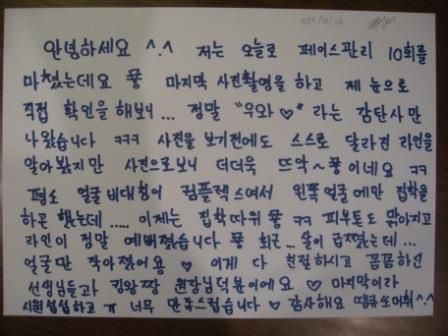 2011/12/10
안녕하세요 ^.^ 저는 오늘로 페이스관리 10회를
마쳤는데요 뿅 마지막 사진촬영을 하고 제 눈으로
직접 확인을 해보니... 정말 "우와♡" 라는 감탄사만
나왔습니다 ㅋㅋㅋ 사진을 보기전에도 스스로 달라진 라인을
알아봤지만 사진으로보니 더더욱 뜨악~뿅이네요 ㅋㅋ
평소 얼굴 비대칭이 컴플렉스여서 왼쪽 얼굴에만 집착을
하곤 했는데..... 이제는 집착따위 뿅 ㅋㅋ 피부톤도 맑아지고
라인이 정말 예뻐졌습니다 뿅 최근... 살이 급쪘는데...
얼굴만 작아졌어용♡ 이게 다 친절하시고 꼼꼼하신
선생님들과 킹왕짱 원장님덕분이에요♡ 마지막이라
시원섭섭하고 ㅠ 너무 만족스럽습니다♡ 감사해요 땡큐쏘머취^.^